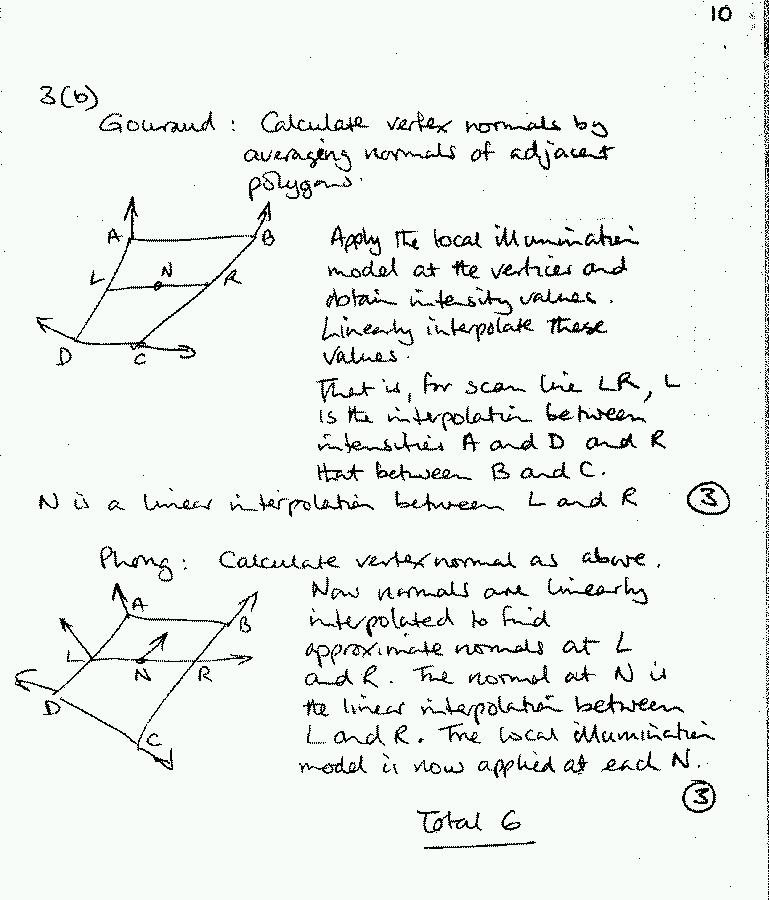 10
3(b)
Gouraud : Calculate vertex normals by
averaging normals of adjacent
polygons.
A
B
L
N
R
D
C
Apply the local illumination
model at the vertices and
obtain intensity values.
Linearly interpolate these
values.
That is, for scan line LR, L
is the interpolation between
intensities A and D and R
that between B and C.
N is a linear interpolation between L and R
3
Phong: Calculate vertex normal as above.
A
B
L
N
R
D
C
Now normals are linearly
interpolated to find
approximate normals at L
and R. The normal at N is
the linear interpolation between
L and R. The local illumination
model is now applied at each N.
3
Total 6